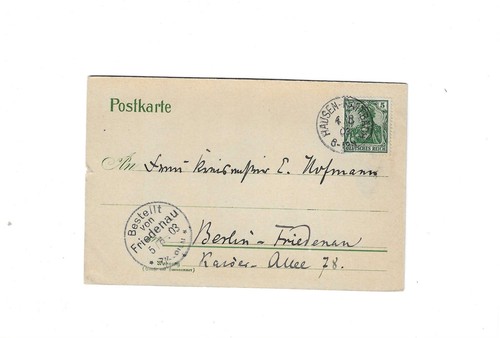 Postkarte
HAUSEN-
4 8
03
DEUTSCHES REICH
5
An Frau Kreismstr E. Hofmann
Bestellt
von
Friedenau
5. 8. 03
Berlin-Friedenau
Kaiser-Allee 78.
Wohnung